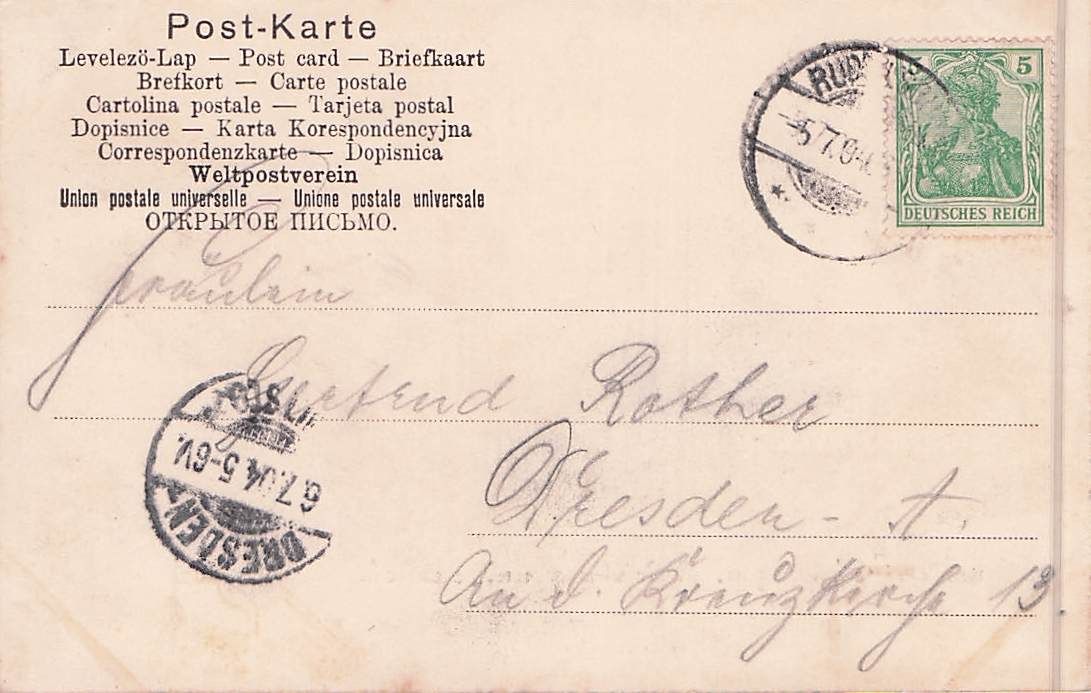 Post-Karte
Levelezö-Lap — Post card — Briefkaart
Brefkort — Carte postale
Cartolina postale — Tarjeta postal
Dopisnice — Karta Korespondencyjna
Correspondenzkarte — Dopisnica
Weltpostverein
Union postale universelle — Unione postale universale
ОТКРЫТОЕ ПИСЬМО.
5
DEUTSCHES REICH
5.7.04
Fräulein
Gertrud Rother
Dresden - A.
An d. Kreuzkirche 13.
6.7.04.5-6V.
DRESDEN